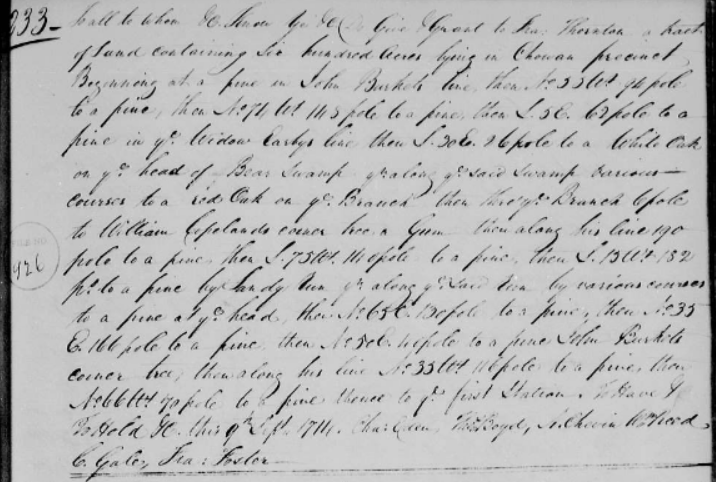 233- To all to whom &c. Know Ye &c. Give & Grant to Fra: Thornton a tract
of Land containing Six hundred Acres lying in Chowan precinct
Beginning at a pine in John Burkets line, then No. 33 Wt. 94 pole
to a pine, then No. 74 Wt. 143 pole to a pine, then S. 5 E. 62 pole to a
pine in ye. Widow Earbys line then S. 20 E. 26 pole to a White Oak
on ye. head of Bear Swamp ye. along ye. said Swamp various
courses to a red Oak on ye. Branch then thro ye. Branch 6 pole
to William Copelands corner tree a Gum then along his line 190
pole to a pine then S. 73 Wt. 140 pole to a pine, then S. 13 Wt. 132
926
po. to a pine by Sandy Run ye. along ye. said Run by various courses
to a pine at ye. head, then No. 65 E. 130 pole to a pine, then No. 35
E. 166 pole to a pine, then No. 5 E. pole to a pine John Burkets
corner tree, then along his line No. 33 Wt. 116 pole to a pine, then
No. 66 Wt. 70 pole to a pine thence to ye. first Station. To Have &
To Hold &c. this 9th Sept. 1714. Cha: Eden, Tho: Boyd, N. Chevin Wm. Reed,
C. Gale, Fra: Foster